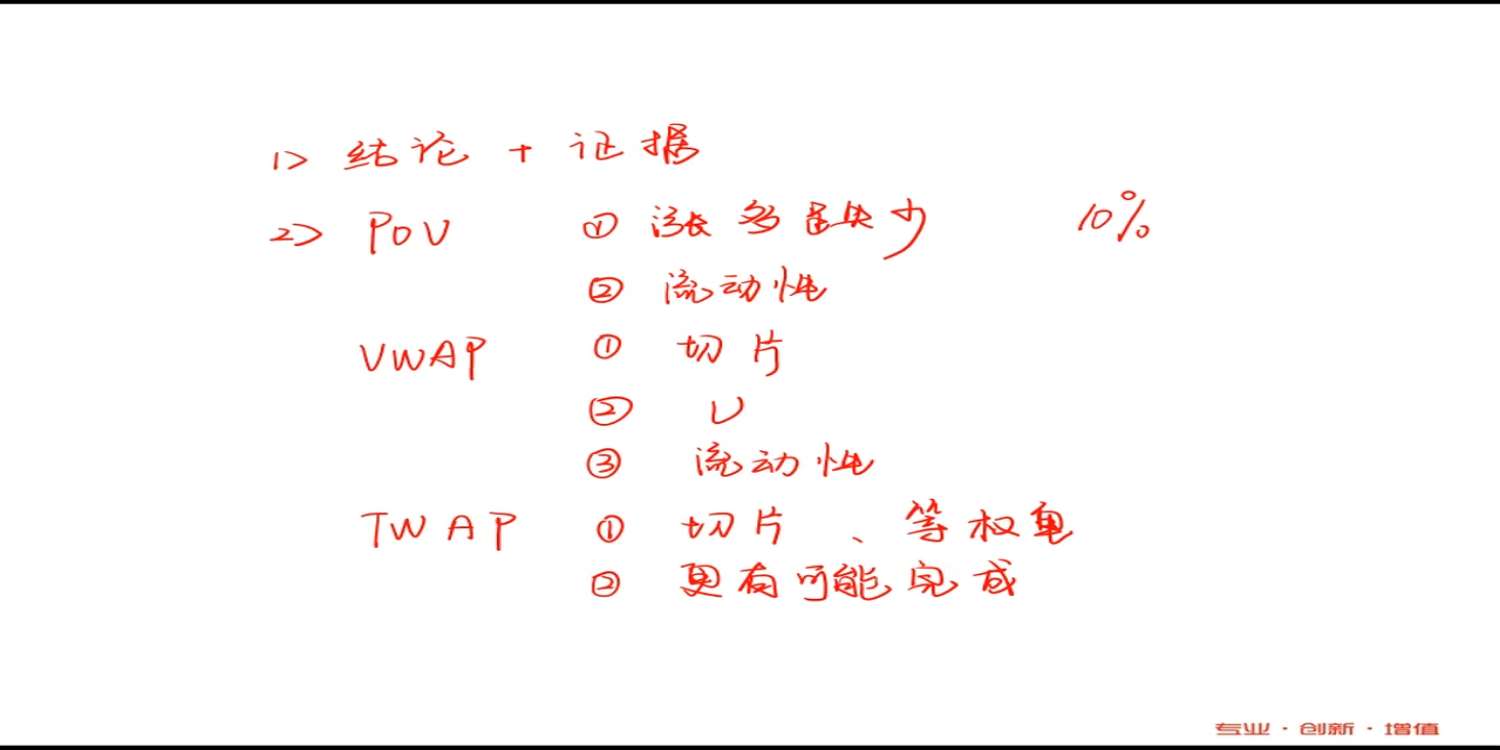 1> 结论 + 证据
2> POV ① 涨多跌少 10%
② 流动性
VWAP ① 切片
② U
③ 流动性
TWAP ① 切片、等权重
② 更有可能完成
专业·创新·增值